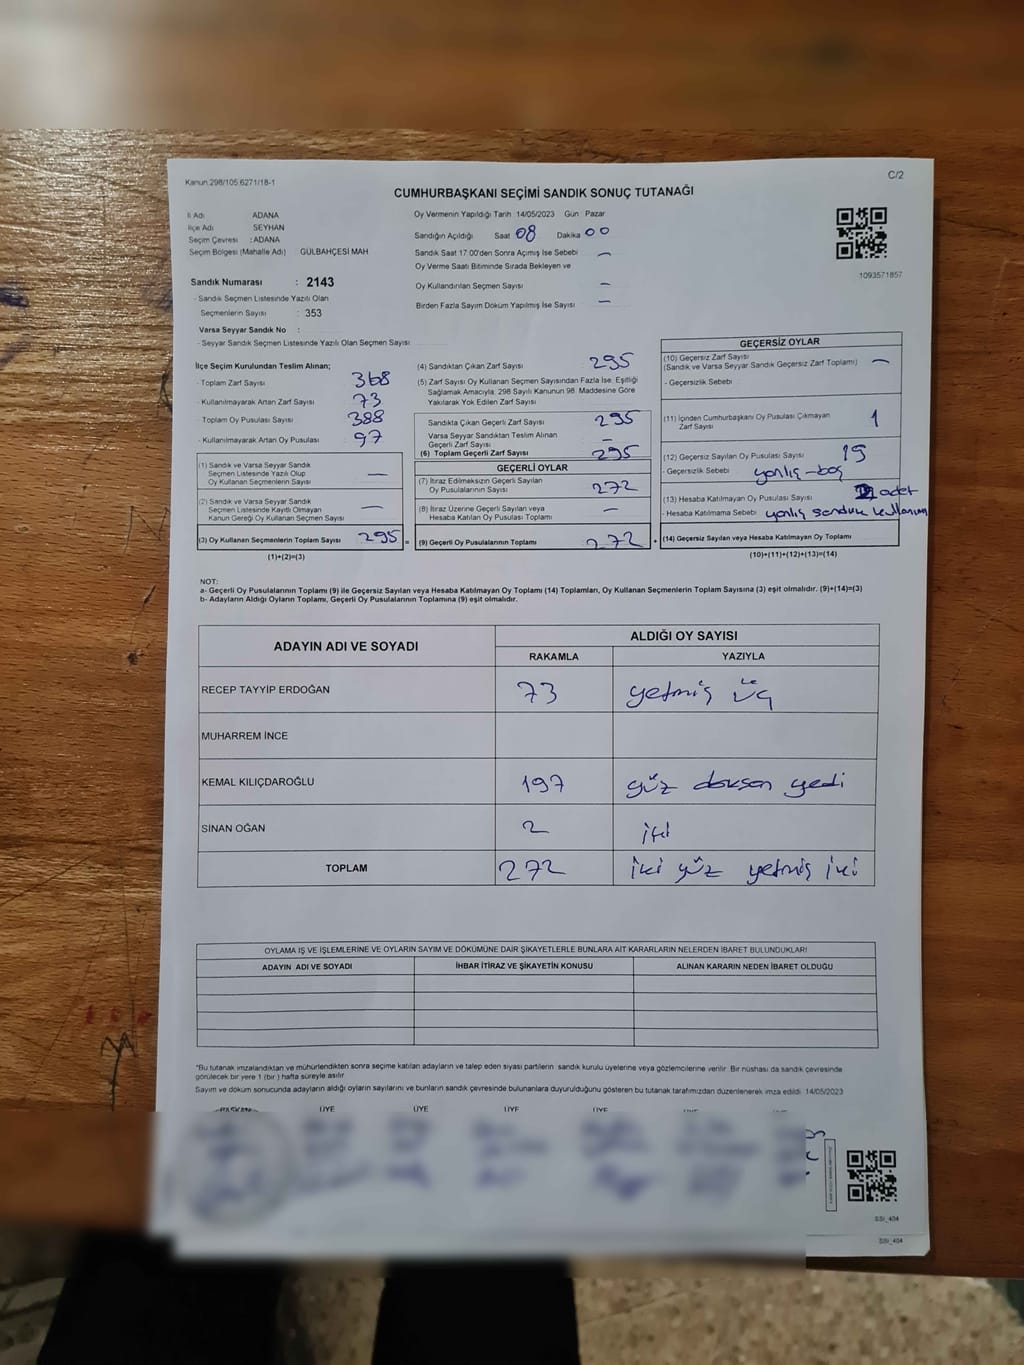 Kanun:298/105.6271/18-1
C/2
CUMHURBAŞKANI SEÇİMİ SANDIK SONUÇ TUTANAĞI
İl Adı ADANA
İlçe Adı SEYHAN
Seçim Çevresi :ADANA
Seçim Bölgesi (Mahalle Adı) GÜLBAHÇESİ MAH
Oy Vermenin Yapıldığı Tarih 14/05/2023 Gün Pazar
Sandığın Açıldığı Saat 08 Dakika 00
Sandık Saat 17:00'den Sonra Açımış İse Sebebi —
Oy Verme Saati Bitiminde Sırada Bekleyen ve
Oy Kullandırılan Seçmen Sayısı —
Birden Fazla Sayım Döküm Yapılmış İse Sayısı —
1093571857
Sandık Numarası : 2143
- Sandık Seçmen Listesinde Yazılı Olan
Seçmenlerin Sayısı : 353
Varsa Seyyar Sandık No :
- Seyyar Sandık Seçmen Listesinde Yazılı Olan Seçmen Sayısı
İlçe Seçim Kurulundan Teslim Alınan;
- Toplam Zarf Sayısı 368
- Kullanılmayarak Artan Zarf Sayısı 73
- Toplam Oy Pusulası Sayısı 388
- Kullanılmayarak Artan Oy Pusulası 97
(1) Sandık ve Varsa Seyyar Sandık
Seçmen Listesinde Yazılı Olup
Oy Kullanan Seçmenlerin Sayısı —
(2) Sandık ve Varsa Seyyar Sandık
Seçmen Listesinde Kayıtlı Olmayan
Kanun Gereği Oy Kullanan Seçmen Sayısı —
(3) Oy Kullanan Seçmenlerin Toplam Sayısı 295 =
(1)+(2)=(3)
(4) Sandıktan Çıkan Zarf Sayısı 295
(5) Zarf Sayısı Oy Kullanan Seçmen Sayısından Fazla İse, Eşitliği
Sağlamak Amacıyla; 298 Sayılı Kanunun 98. Maddesine Göre
Yakılarak Yok Edilen Zarf Sayısı
Sandıkta Çıkan Geçerli Zarf Sayısı 295
Varsa Seyyar Sandıktan Teslim Alınan
Geçerli Zarf Sayısı —
(6) Toplam Geçerli Zarf Sayısı 295
GEÇERLİ OYLAR
(7) İtiraz Edilmeksizin Geçerli Sayılan
Oy Pusulalarının Sayısı 272
(8) İtiraz Üzerine Geçerli Sayılan veya
Hesaba Katılan Oy Pusulası Toplamı —
(9) Geçerli Oy Pusulalarının Toplamı 272 +
GEÇERSİZ OYLAR
(10) Geçersiz Zarf Sayısı
(Sandık ve Varsa Seyyar Sandık Geçersiz Zarf Toplamı) —
- Geçersizlik Sebebi
(11) İçinden Cumhurbaşkanı Oy Pusulası Çıkmayan
Zarf Sayısı 1
(12) Geçersiz Sayılan Oy Pusulası Sayısı 19
- Geçersizlik Sebebi yanlış-boş
(13) Hesaba Katılmayan Oy Pusulası Sayısı adet
- Hesaba Katılmama Sebebi yanlış sandık kullanım
(14) Geçersiz Sayılan veya Hesaba Katılmayan Oy Toplamı
(10)+(11)+(12)+(13)=(14)
NOT:
a- Geçerli Oy Pusulalarının Toplamı (9) ile Geçersiz Sayılan veya Hesaba Katılmayan Oy Toplamı (14) Toplamları, Oy Kullanan Seçmenlerin Toplam Sayısına (3) eşit olmalıdır. (9)+(14)=(3)
b- Adayların Aldığı Oyların Toplamı, Geçerli Oy Pusulalarının Toplamına (9) eşit olmalıdır.
ADAYIN ADI VE SOYADI
ALDIĞI OY SAYISI
RAKAMLA YAZIYLA
RECEP TAYYİP ERDOĞAN 73 yetmiş üç
MUHARREM İNCE
KEMAL KILIÇDAROĞLU 197 yüz doksan yedi
SİNAN OĞAN 2 iki
TOPLAM 272 iki yüz yetmiş iki
OYLAMA İŞ VE İŞLEMLERİNE VE OYLARIN SAYIM VE DÖKÜMÜNE DAİR ŞİKAYETLERLE BUNLARA AİT KARARLARIN NELERDEN İBARET BULUNDUKLARI
ADAYIN ADI VE SOYADI İHBAR İTİRAZ VE ŞİKAYETİN KONUSU ALINAN KARARIN NEDEN İBARET OLDUĞU
"Bu tutanak imzalandıktan ve mühürlendikten sonra seçime katılan adayların ve talep eden siyasi partilerin sandık kurulu üyelerine veya gözlemcilerine verilir. Bir nüshası da sandık çevresinde
görülecek bir yere 1 (bir ) hafta süreyle asılır.
Sayım ve döküm sonucunda adayların aldığı oyların sayılarını ve bunların sandık çevresinde bulunanlara duyurulduğunu gösteren bu tutanak tarafımızdan düzenlenerek imza edildi. 14/05/2023
BAŞKAN ÜYE ÜYE ÜYE ÜYE ÜYE ÜYE
SSI_404
SSI_404